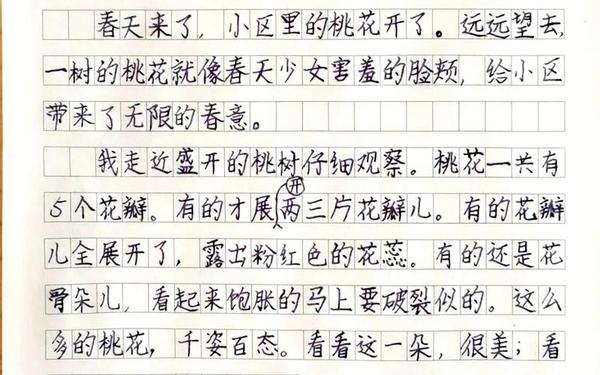 春天来了，小区里的桃花开了。远远望去，
一树的桃花就像春天少女害羞的脸颊，给小区
带来了无限的春意。
我走近盛开的桃树仔细观察。桃花一共有
5个花瓣。有的才展开两三片花瓣儿。有的花瓣
儿全展开了，露出粉红色的花蕊。有的还是花
骨朵儿，看起来饱胀的马上要破裂似的。这么
多的桃花，千姿百态。看看这一朵，很美；看